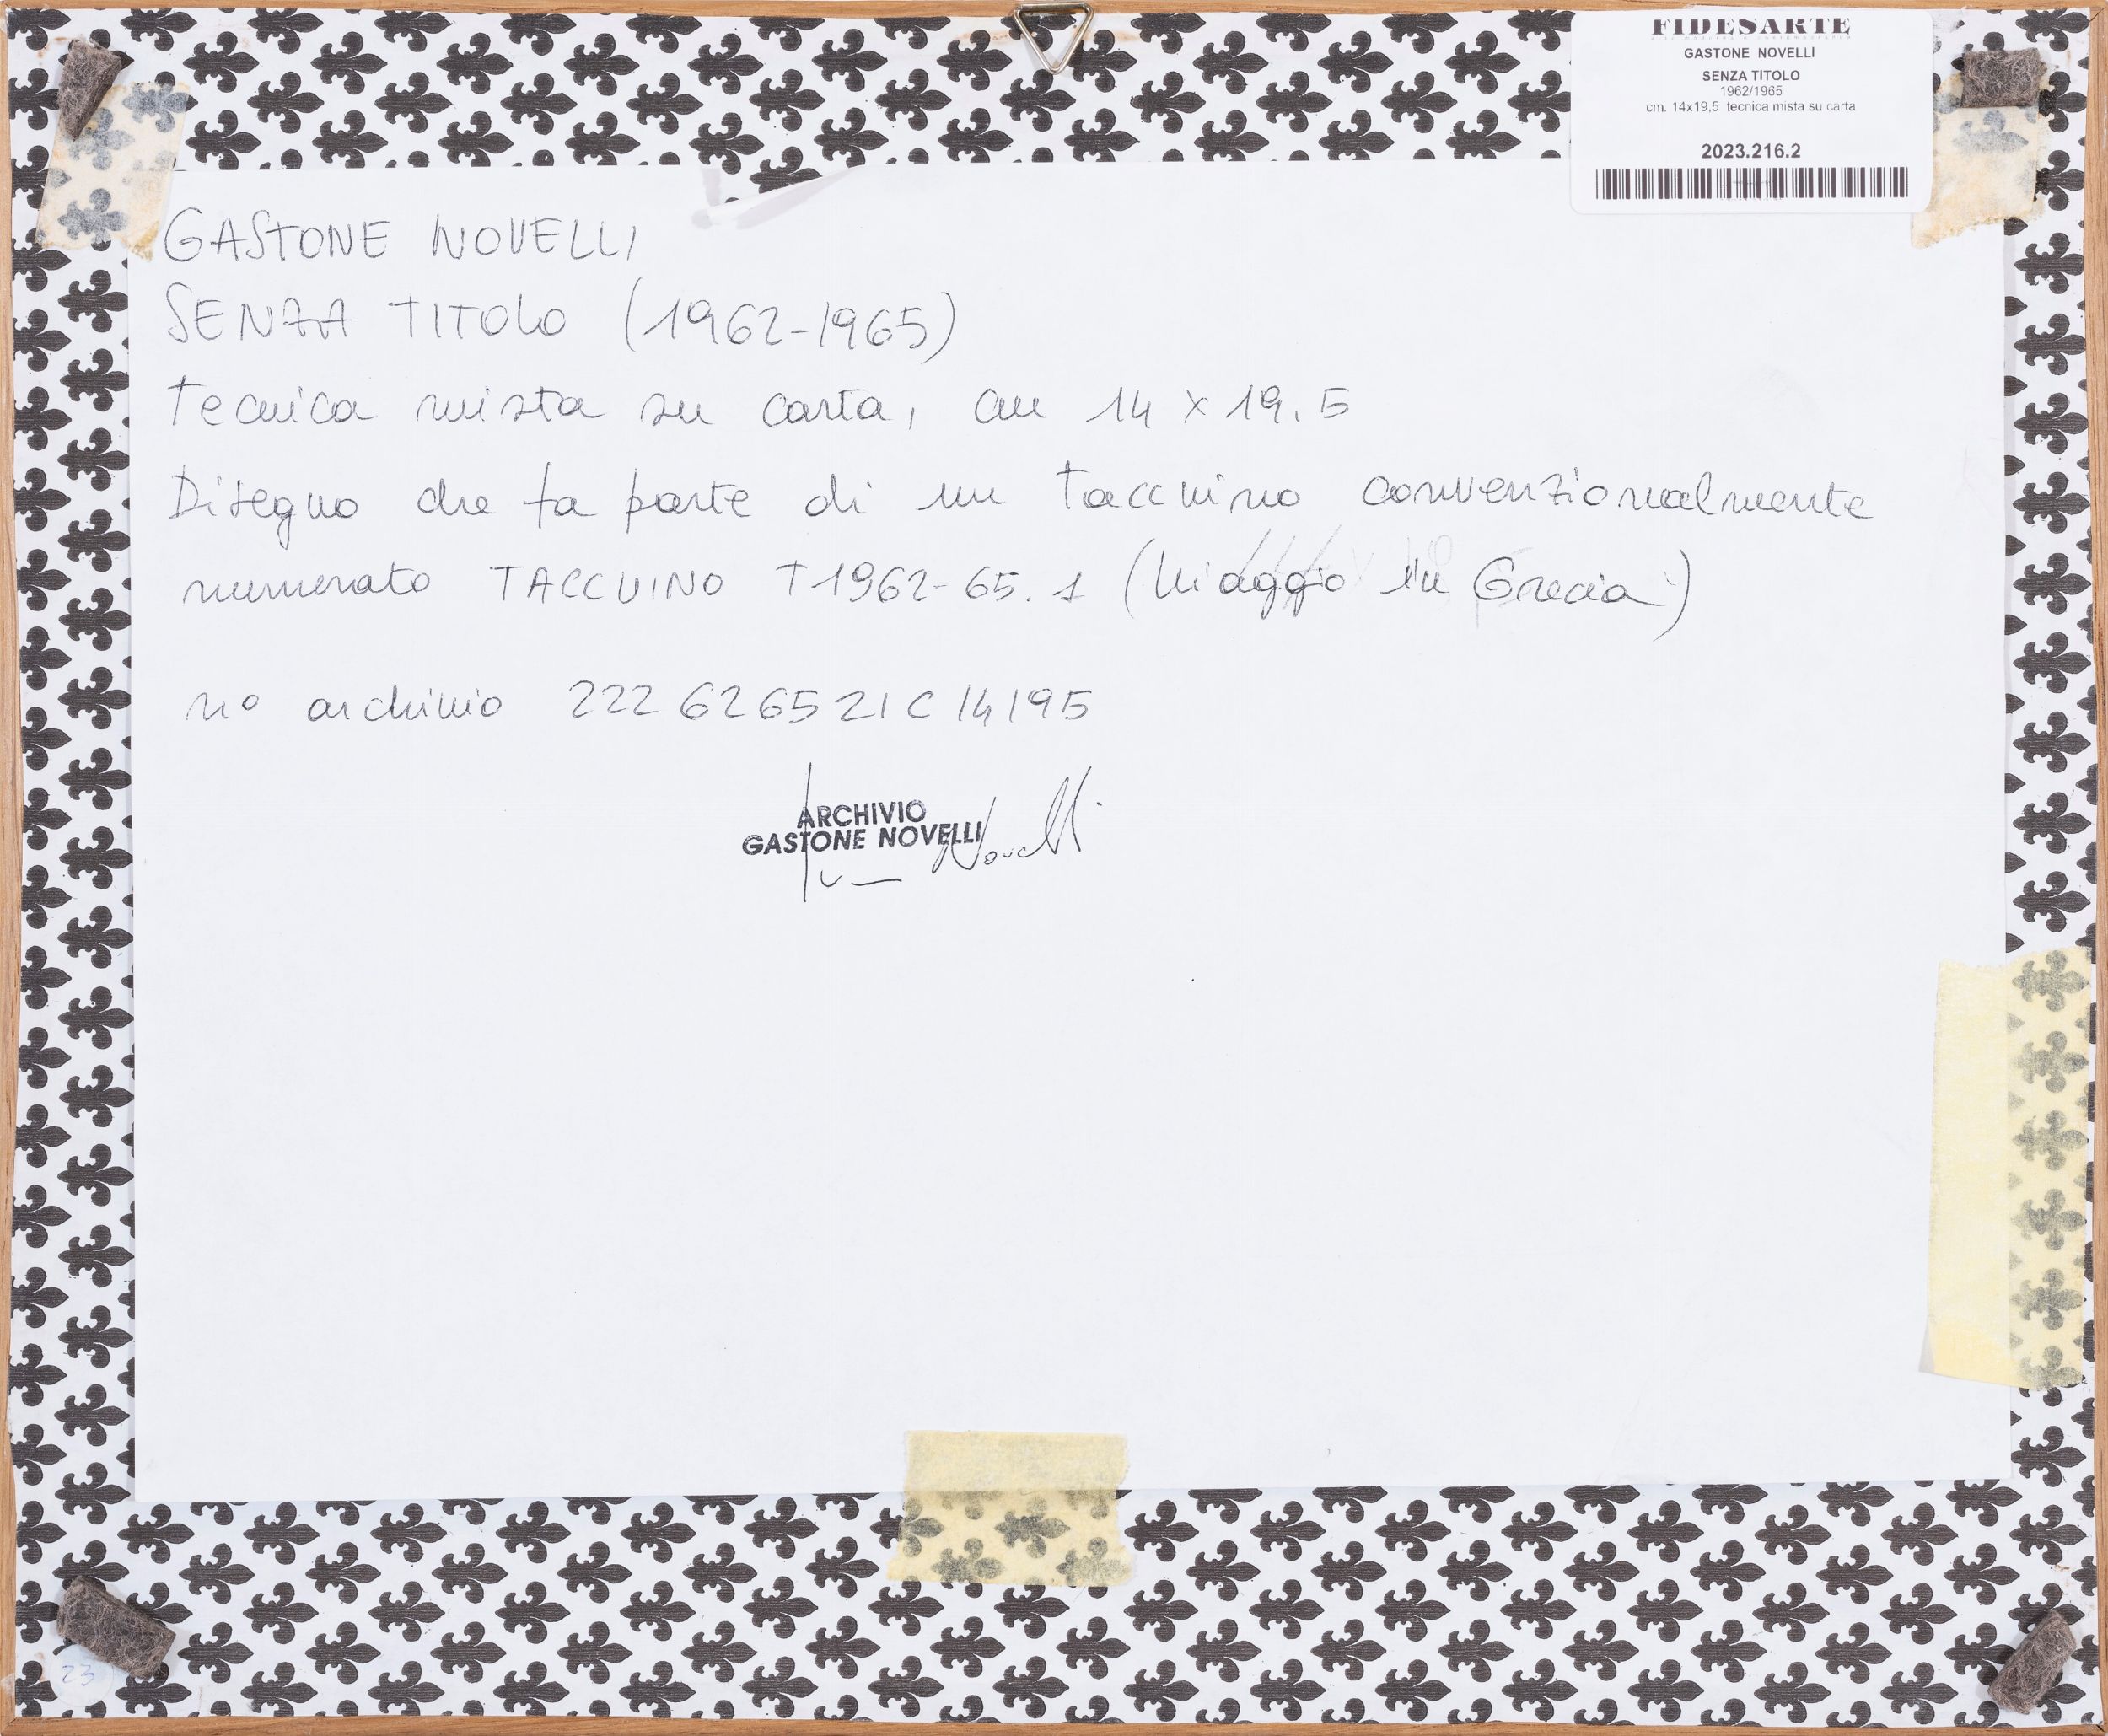 FIDESARTE
GASTONE NOVELLI
SENZA TITOLO
1962/1965
cm. 14x19,5 tecnica mista su carta
2023.216.2
GASTONE NOVELLI
SENZA TITOLO (1962-1965)
Tecnica mista su carta, cm 14 x 19.5
Disegno che fa parte di un taccuino convenzionalmente
numerato TACCUINO T1962-65.1 (Viaggio in Grecia)
n° archivio 222 6265 21 C 14195
ARCHIVIO
GASTONE NOVELLI
Novelli
23